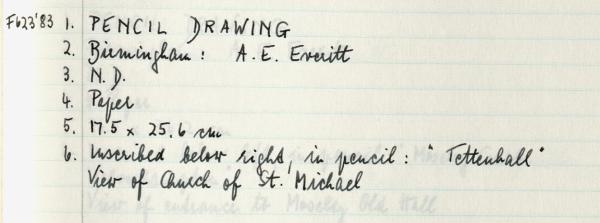 F623'83 1. PENCIL DRAWING
2. Birmingham: A.E. Everitt
3. N.D.
4. Paper
5. 17.5 x 25.6 cm
6. Inscribed below right, in pencil: "Tettenhall"
View of Church of St. Michael
View of entrance to Moseley Old Hall